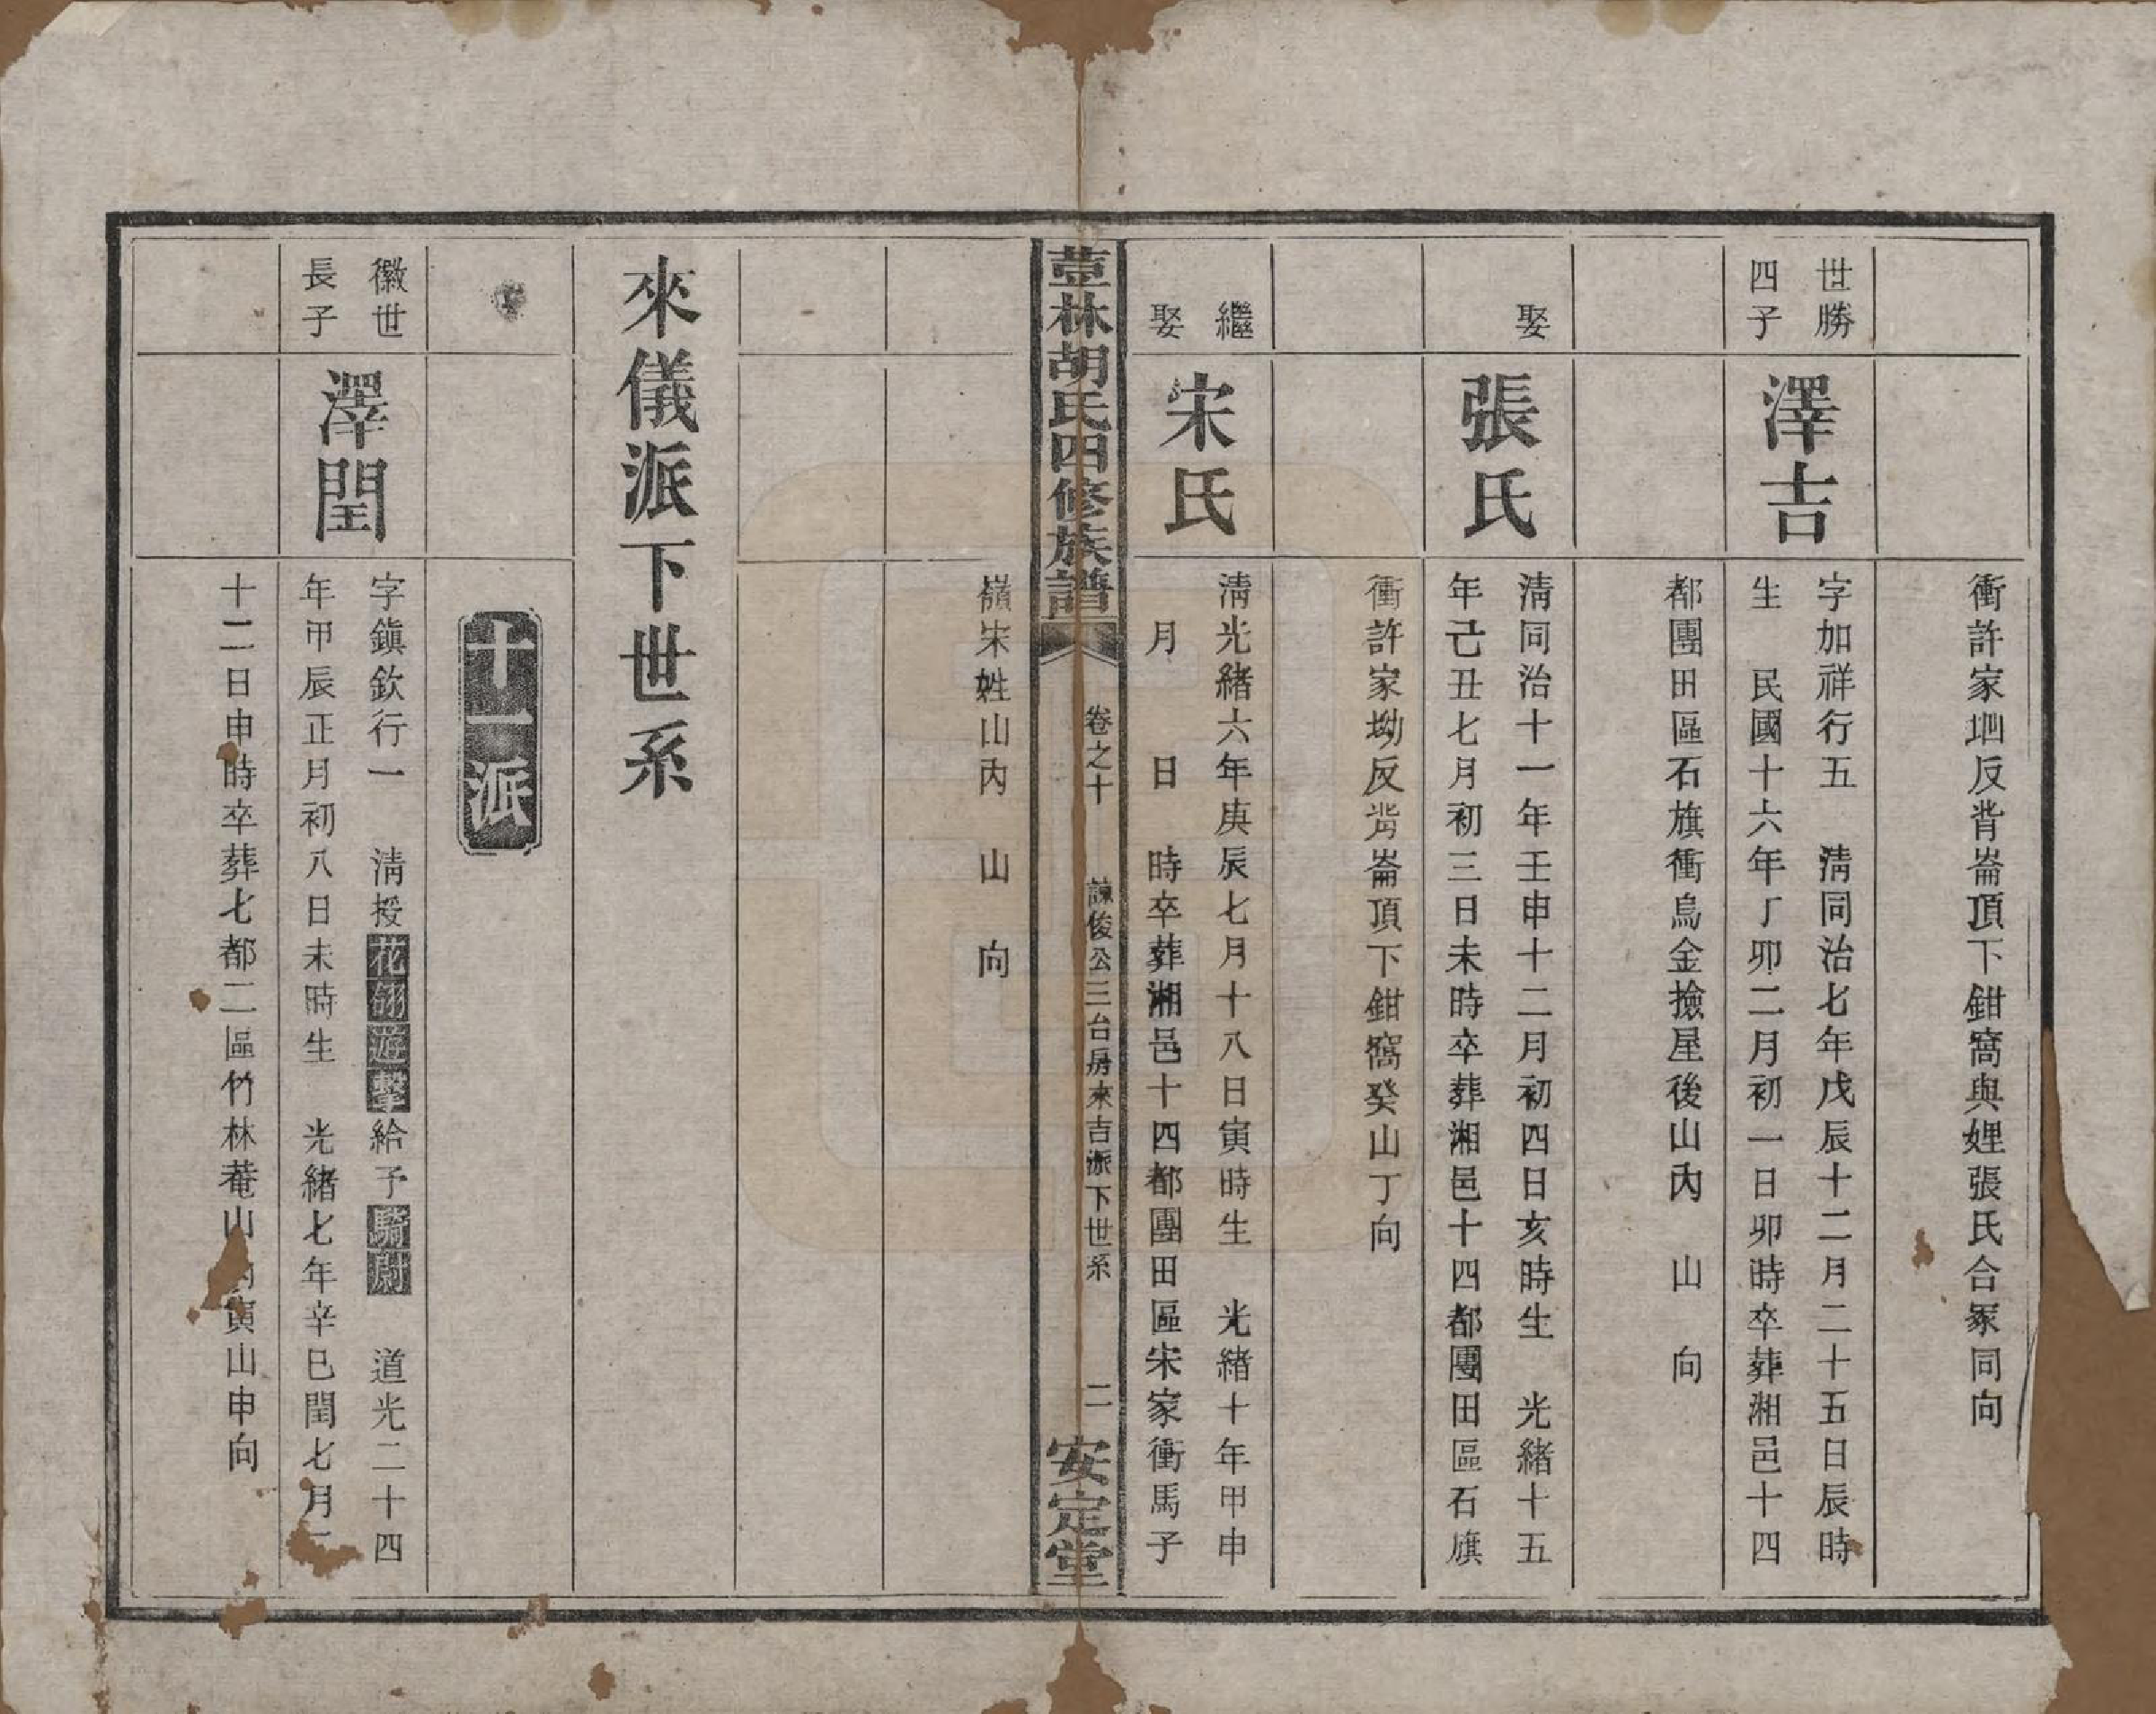 衝許家坳反背崙頂下鉗窩與娌張氏合冢同向
世勝
四子
澤吉
字加祥行五　清同治七年戊辰十二月二十五日辰時
生　民國十六年丁卯二月初一日卯時卒葬湘邑十四
都團田區石旗衝烏金撿屋後山內　山　向
娶
張氏
清同治十一年壬申十二月初四日亥時生　光緒十五
年己丑七月初三日未時卒葬湘邑十四都團田區石旗
衝許家坳反背崙頂下鉗窩癸山丁向
繼
娶
宋氏
清光緒六年庚辰七月十八日寅時生　光緒十年甲申
月　日　時卒葬湘邑十四都團田區宋家衝馬子
荳林胡氏四修族譜　卷之十　諫俊公三台房來吉派下世系　二　安定堂
嶺宋姓山內　山　向
來儀派下世系
十一派
徽世
長子
澤閏
字鎮欽行一　清授花翎遊擊給予騎尉　道光二十四
年甲辰正月初八日未時生　光緒七年辛巳閏七月二
十二日申時卒葬七都二區竹林菴山內寅山申向